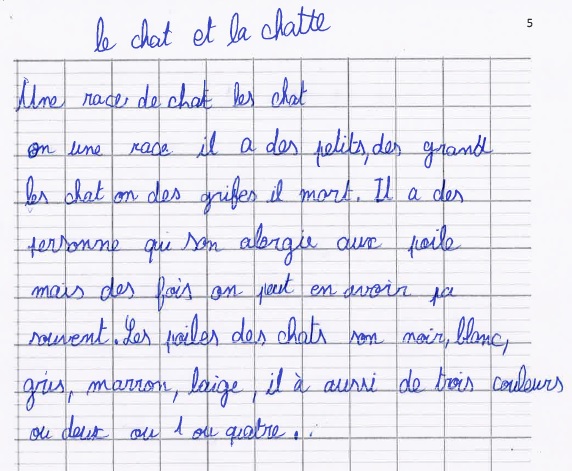 le chat et la chatte
5
Une race de chat les chat
on une race il a des petits, des grand
les chat on des grifes il mort. Il a des
personne qui son alergie aux poile
mais des fois on peut en avoir pa
souvent. Les poiles des chats son noir, blanc,
gris, marron, baige, il à aussi de trois couleurs
ou deux ou 1 ou quatre...